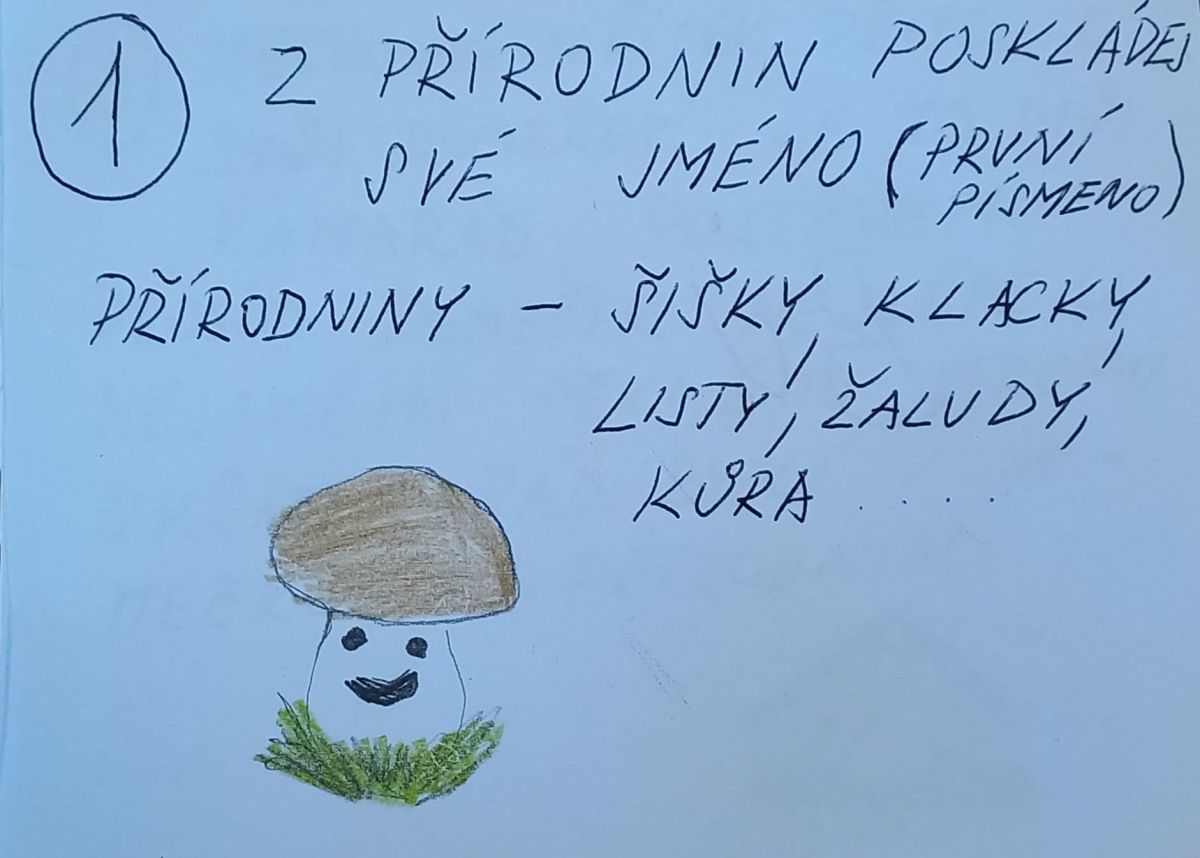 1
Z PŘÍRODNIN POSKLÁDEJ
SVÉ JMÉNO (PRVNÍ
PÍSMENO)
PŘÍRODNINY - ŠIŠKY, KLACKY,
LISTY, ŽALUDY,
KŮRA .....